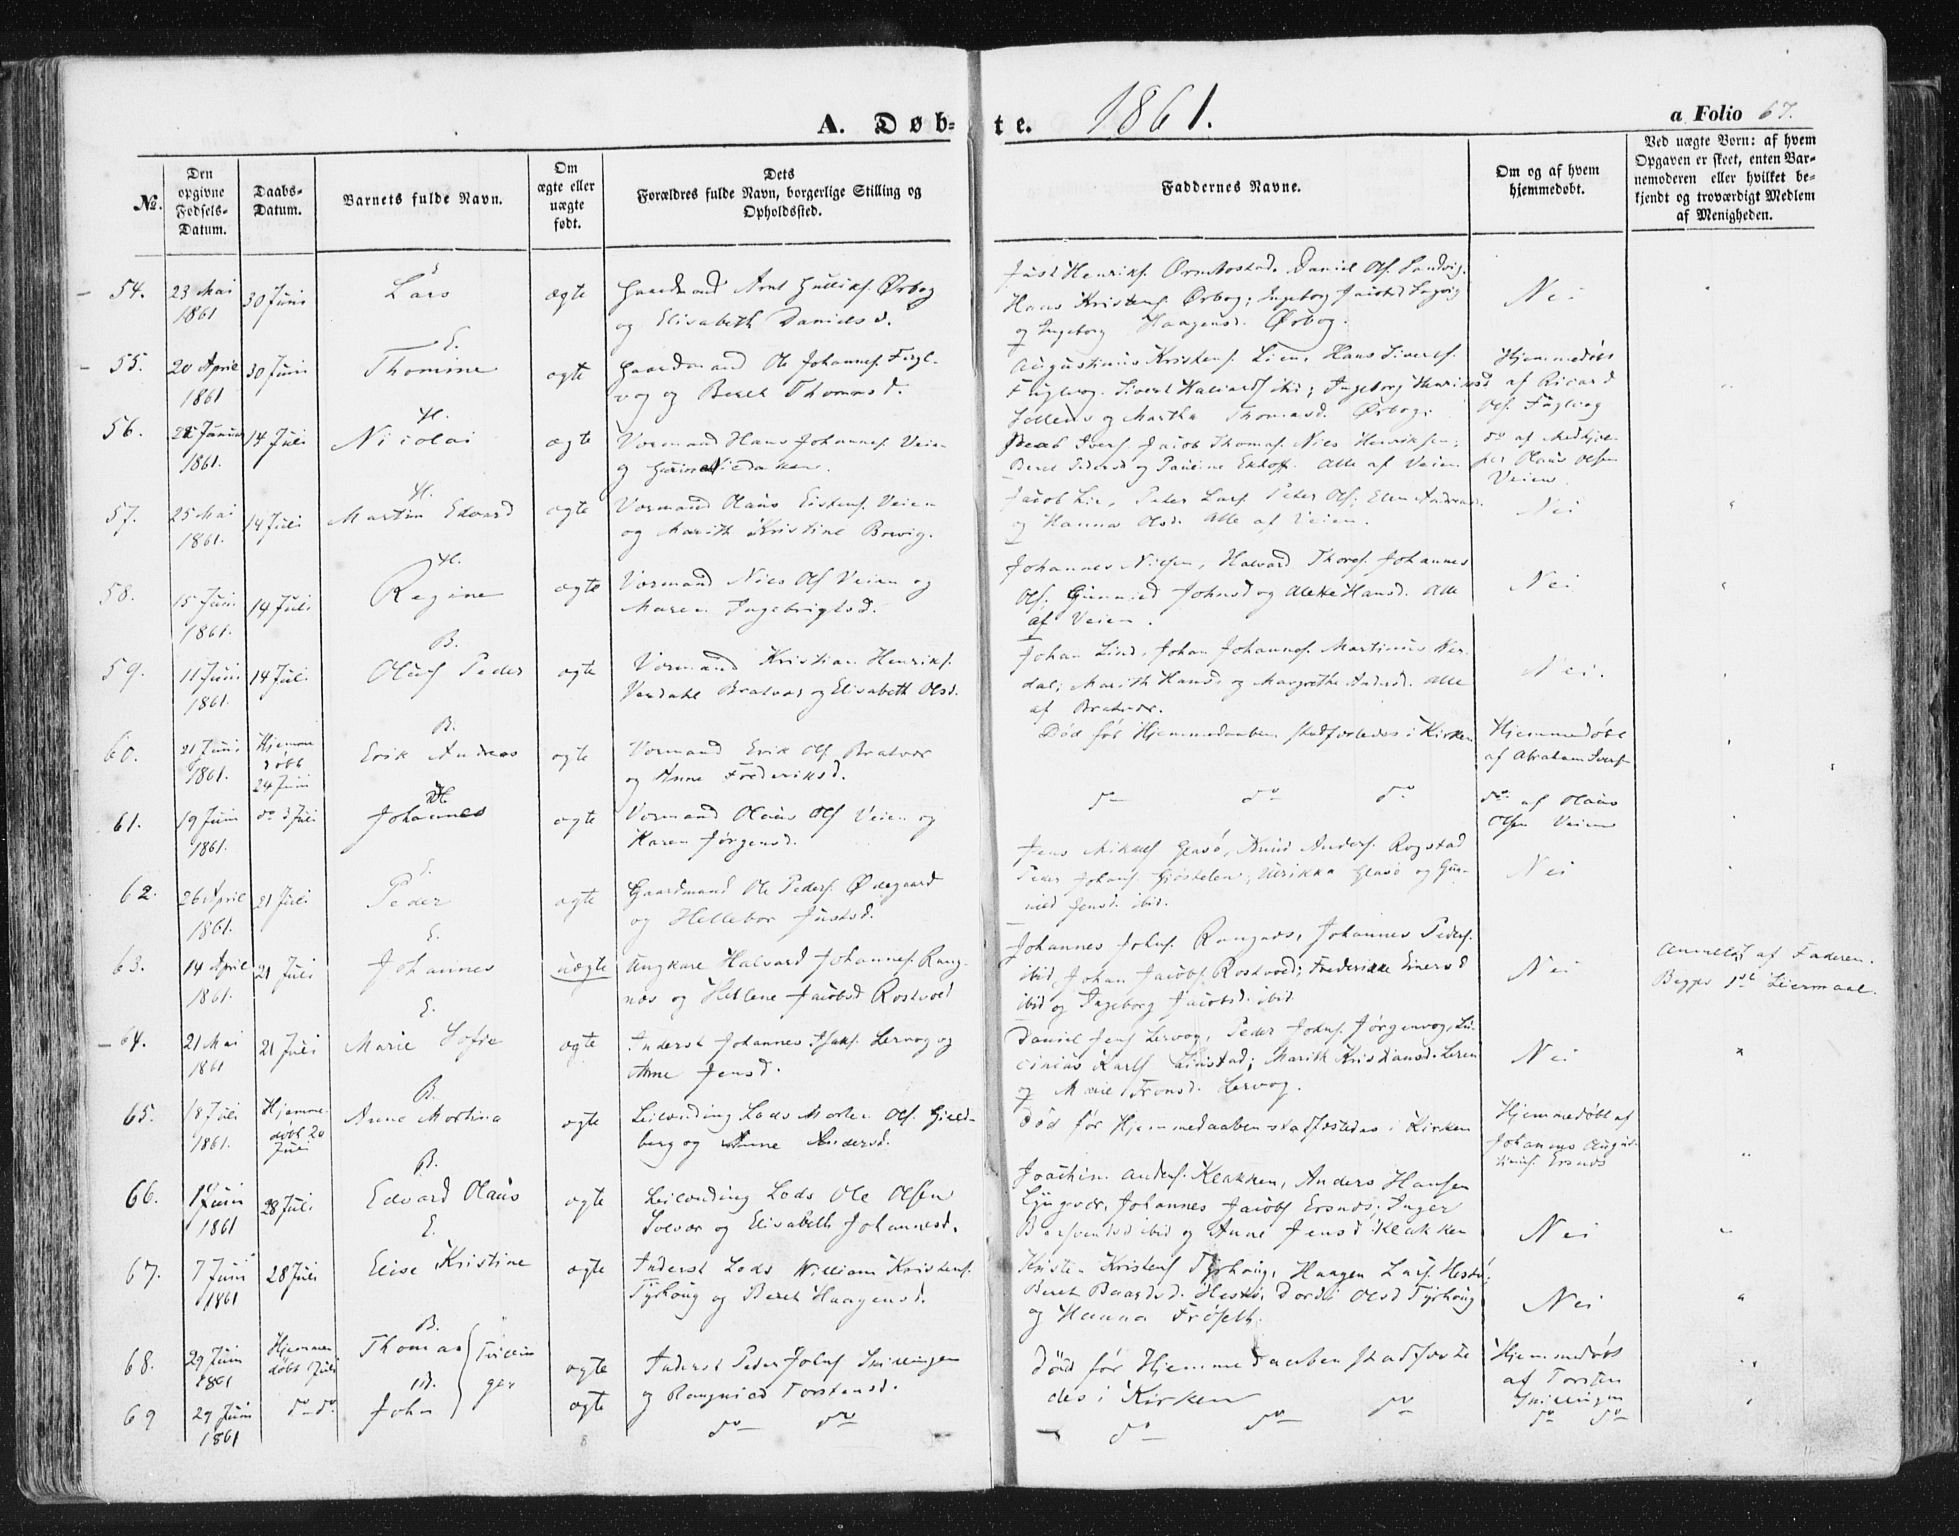 A. Døb-te. 1861. a Folio 67.
№.
Den opgivne Fødsels-Datum.
Daabs-Datum.
Barnets fulde Navn.
Om ægte eller uægte født.
Dets Forældres fulde Navn, borgerlige Stilling og Opholdssted.
Faddernes Navne.
Om og af hvem hjemmedøbt.
Ved uægte Børn: af hvem Opgaven er skeet, enten Barnemoderen eller hvilket bekjendt og troværdigt Medlem af Menigheden.
54. 23 Mai 1861 30 Juni Lars ægte Gaardmand Arnt Gulliks. Ørbog
og Elisabeth Danielsd.
Just Henriks. Daniel Ols. Sandvig.
Hans Kristens. Ørbog; Ingeborg
og Ingeborg Haagensd. Ørbog.
Nei
55. 20 April 1861 30 Juni E. Thomine ægte Gaardmand Ole Johannes. Fugl-
vog og Beret Thomasd.
Augustinus Kristens. Lien, Hans Siverts.
Fuglvog. Sivert Halvards. ibid; Ingeborg
og Martha Thomasd. Ørbog.
Hjemmedøbt
af Ricard
Ols. Fuglvog
56. Januar 1861. 14 Juli H. Nicolai ægte Vormand Hans Johannes. Veien
og
Jacob Ivers. Jacob Thomas. Nils Henriksen;
Beret Pedersd og Pauline Alle af Veien
do af Medhjel-
per Olaus Olsen
Veien
57. 25 Mai 1861. 14 Juli H. Martin Edvard ægte Vormand Olaus Eistens. Veien
og Marith Kristine
Jacob Lie, Peter Lars. Peter Ols; Ellen Andreasd.
og Hanna Olsd. Alle af Veien.
Nei
58. 15 Juni 1861. 14 Juli H. Regine ægte Vormand Nils Ols Veien og
Maren Ingebrigtsd.
Johannes Nilsen, Halvard Thores. Johannes
Ols; Gunnild Johnsd og Alette Hansd. Alle
af Veien.
Nei
59. 11 Juni 1861. 14 Juli B. Oluf Peder ægte Vormand Kristian Henriks.
Verdahl Bratvær og Elisabeth Olsd.
Johan Lind, Johan Johannes. Martinus Ver-
dal; Marith Hansd. og Margrethe Andersd. Alle
af Bratvær.
Nei.
60. 21 Juni 1861. Hjemme
døbt
24 Juni
B. Erik Andreas ægte Vormand Erik Ols Bratvær
og Anne Frederiksd.
Død før Hjemmedaaben stadfæstedes i Kirken
Hjemmedøbt
af Abraham Ivers
61. 19 Juni 1861. do 3 Juli Johannes ægte Vormand Olaus Ols Veien og
Karen Jørgensd.
do do do
do af Olaus
Olsen Veien
62. 26 April 1861. 21 Juli E. Peder ægte Gaardmand Ole Peders. Ødegaard
og Hellebor Justsd.
Jens Mikaels Glasø, Knud Anders. Rogstad
Peder Johns. Gjøstølen; Ulrikka Glasø og Gun-
nild Jensd. ibid.
Nei
63. 14 April 1861. 21 Juli E. Johannes uægte Ungkarl Halvard Johannes. Rang-
næs og Hellene Jacobsd Rostvold
Johannes Johns. Rangnæs, Johannes Peders.
ibid, Johan Jacobs. Rostvold; Frederikke Einersd
ibid og Ingeborg Jacobsd. ibid
Nei
Anmeldt af Faderen.
Begges 1ste Leiermaal.
64. 21 Mai 1861 21 Juli E. Marie Sofie ægte Inderst Johannes Isaks. Lervog og
Anne Jensd.
Daniel Jens Lervog, Peder Johns. Jørgenvog, Lu-
cinius Karls; Marith Kristiansd. Leren
og Marie Lervog.
Nei
65. 18 Juli 1861. Hjemme-
døbt 20
Juli
B. Anne Mortina ægte Leilending Lods Morten Ols.
berg og Anne Andersd.
Død før Hjemmedaaben stadfæstedes i Kirken
Hjemmedøbt af
Johannes Augus-
tinus. Ersnes
66. Juni 1861 28 Juli B. Edvard Olaus ægte Leilending Lods Ole Olsen
Solvær og Elisabeth Johannesd.
Joachim Anders. Klakken, Anders Hansen
Lyngvær, Johannes Jacobs Ersnes; Inger
ibid og Anne Jensd Klakken
Nei
67. 7 Juni 1861 28 Juli E. Elise Kristine ægte Inderst Lods William Kristens.
Tyrhoug og Beret Haagensd.
Kristen Kristens Tyrhoug, Haagen Lars. Hestø;
Beret Baardsd. Hestø, Dordi Olsd Tyrhoug
og Hanna Frøseth.
Nei
68. 29 Juni 1861 Hjemme
døbt Juli
B. Thomas Tvillin ægte Inderst Peder Johns
og Rangnild Torstensd.
Død før Hjemmedaaben stadfæste
des i Kirken
Hjemmedøbt
af Torsten
69 29 Juni 1861 do do. John ger ægte
do do
do do do
do do